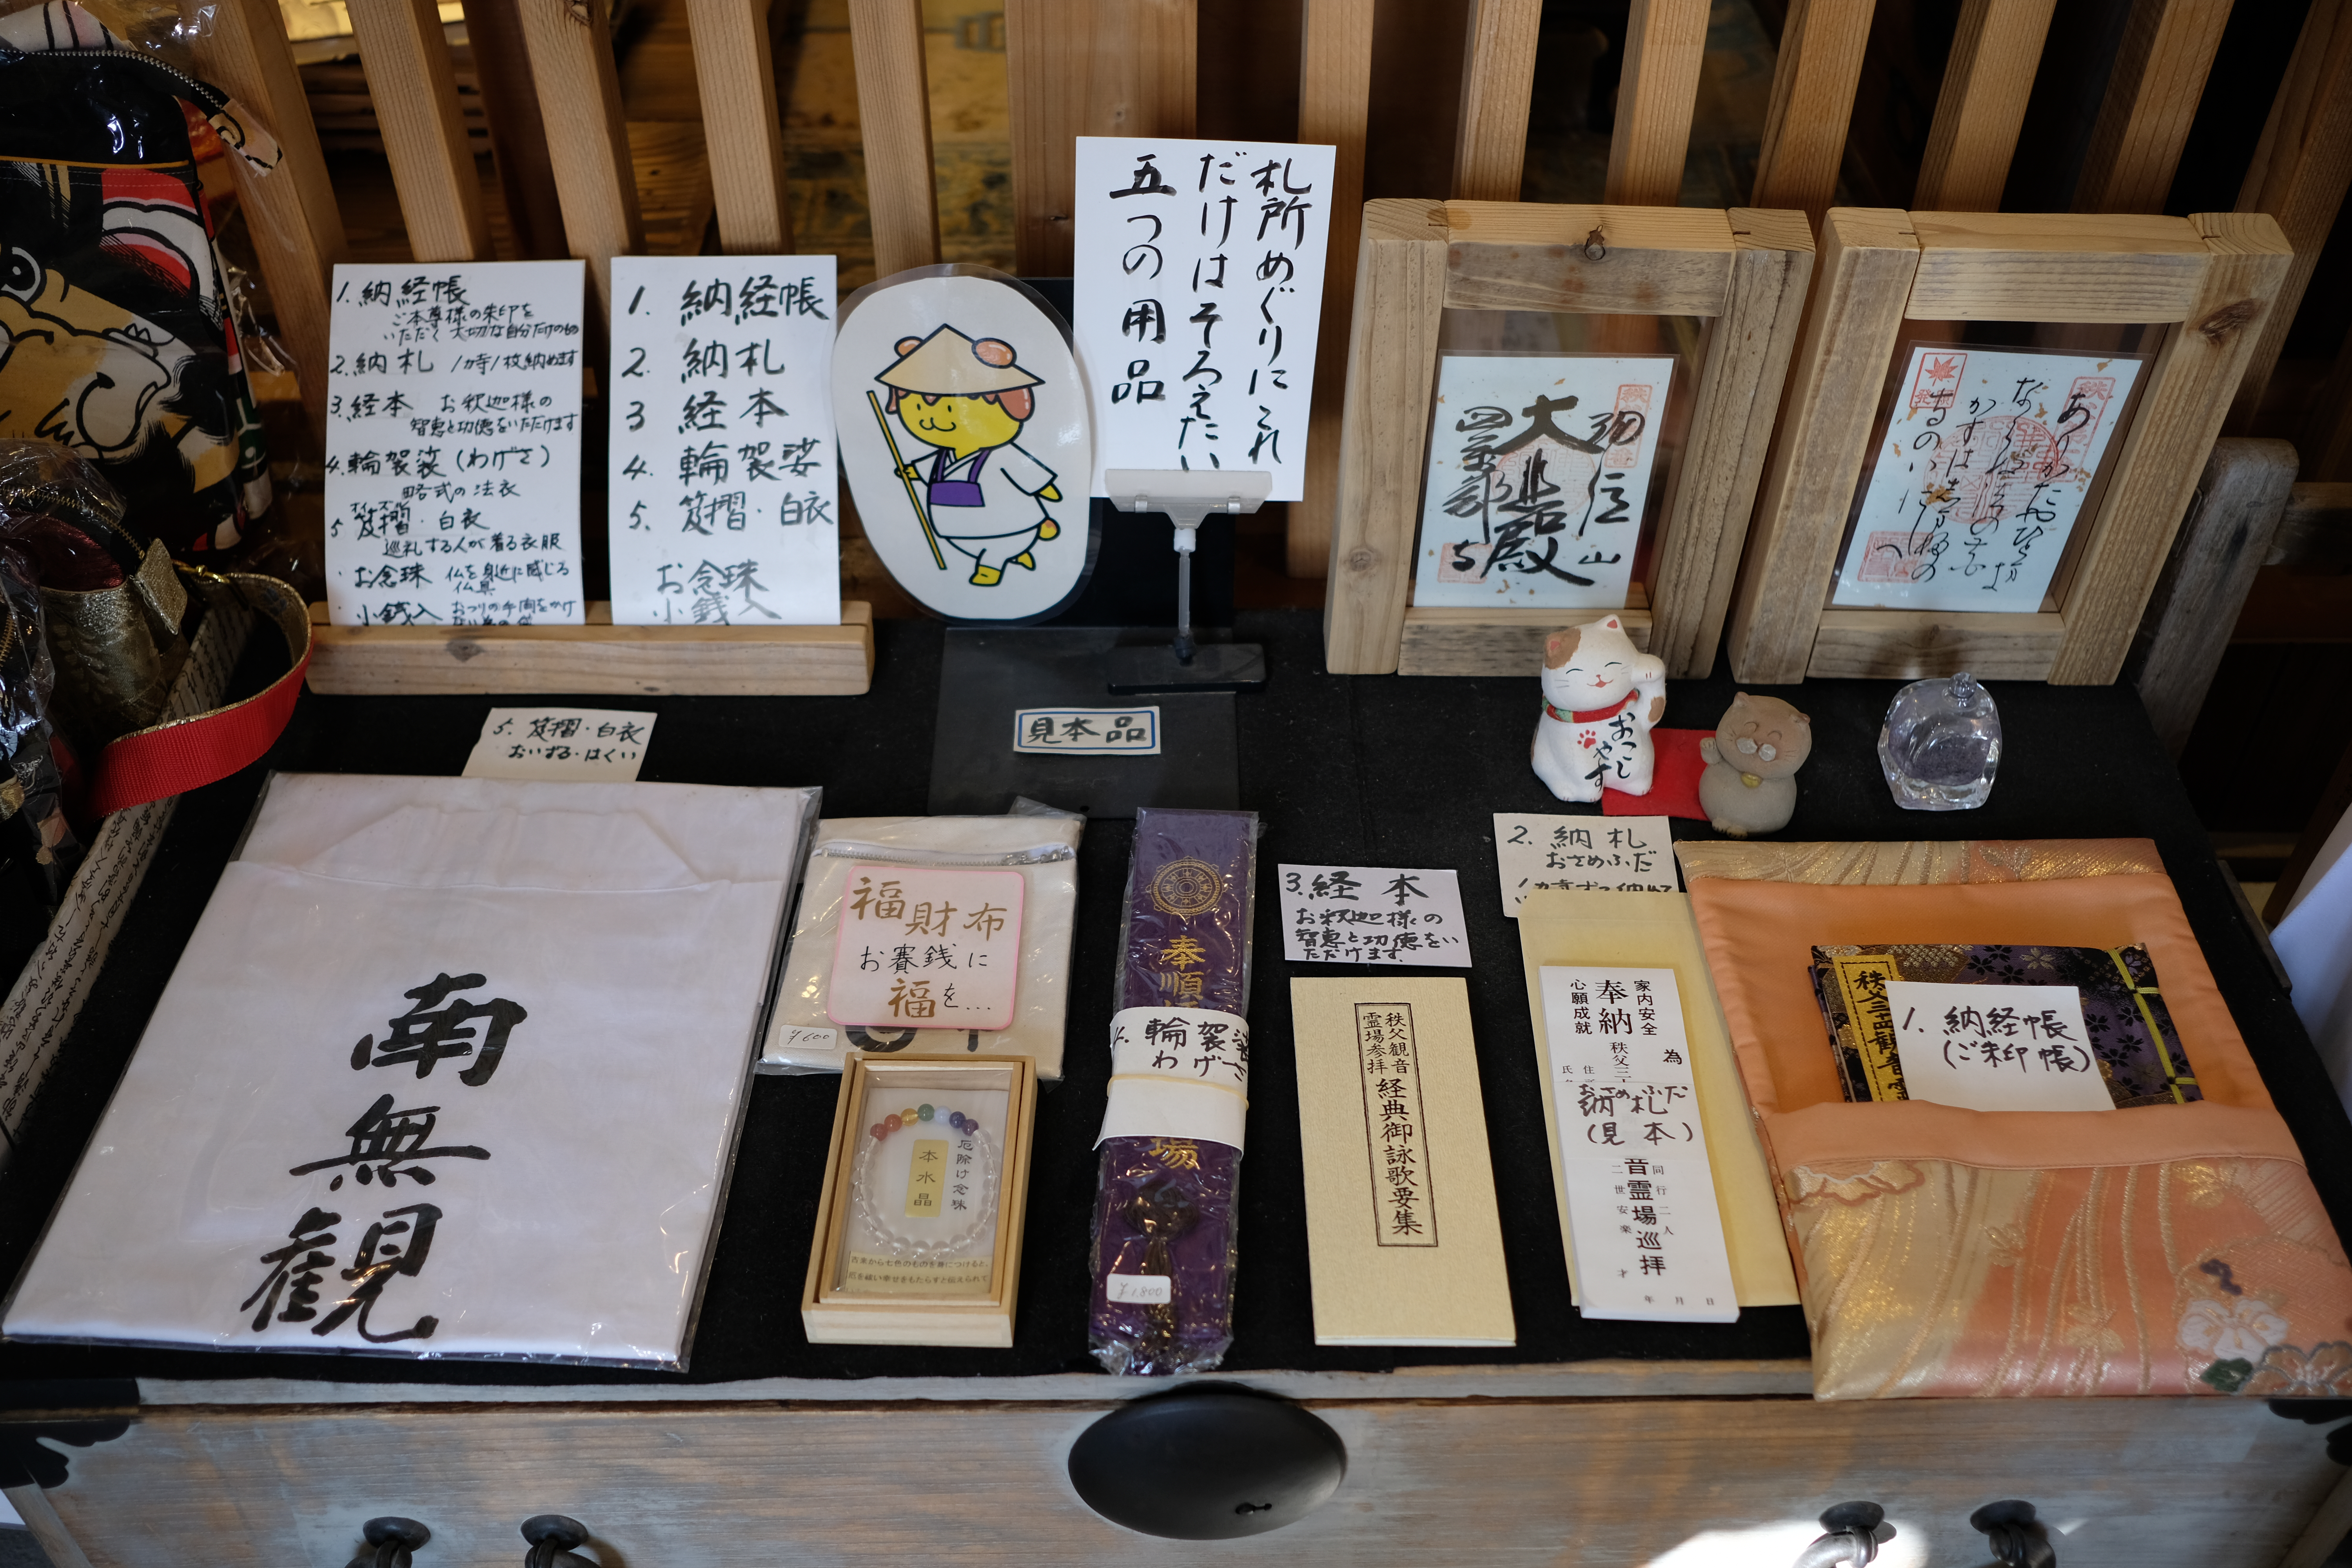 1. 納経帳
ご本尊様の朱印を
いただく大切な自分だけのもの
2. 納札 1カ寺1枚納めます
3. 経本 お釈迦様の
智恵と功徳をいただけます
4. 輪袈裟(わげさ)
略式の法衣
5 笈摺・白衣
巡礼する人が着る衣服
・お念珠 仏を身近に感じる
仏具
・小銭入 おつりの手間をかけ
1. 納経帳
2. 納札
3 経本
4. 輪袈裟
5. 笈摺・白衣
お念珠
小銭入
札所めぐりにこれ
だけはそろえたい
五つの用品
弘法山
大悲殿
四萬部寺
見本品
おこしやす
5. 笈摺・白衣
おいずる・はくい
南無観
福財布
お賽銭に
福を...
¥600
厄除け念珠
本水晶
古来から七色のものを身につけると、
厄を祓い幸せをもたらすと伝えられて
奉順
4. 輪袈裟
わげさ
場
¥1,800
3. 経本
お釈迦様の
智恵と功徳をい
ただけます。
秩父観音
霊場参拝
経典御詠歌要集
2. 納札
おさめふだ
家内安全
心願成就
為
奉納
秩父三
おさめふだ
納札
(見本)
音霊場巡拝
同行二人
二世安楽
才
年 月 日
秩父三十四観音霊
1. 納経帳
(ご朱印帳)